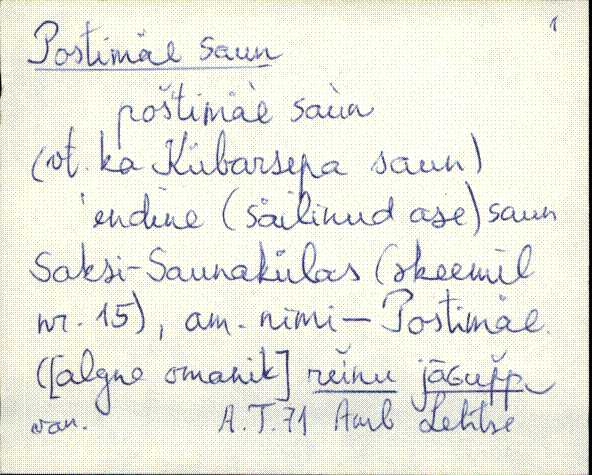 1
Postimäe saun
poštimäe saun
(vt. ka Kübarsepa saun)
endine (säilinud ase) saun
Saksi-Saunakülas (skeemil
nr. 15), am. nimi - Postimäe.
([algne omanik] reinu
van. A.T. 71 Amb Lehtse